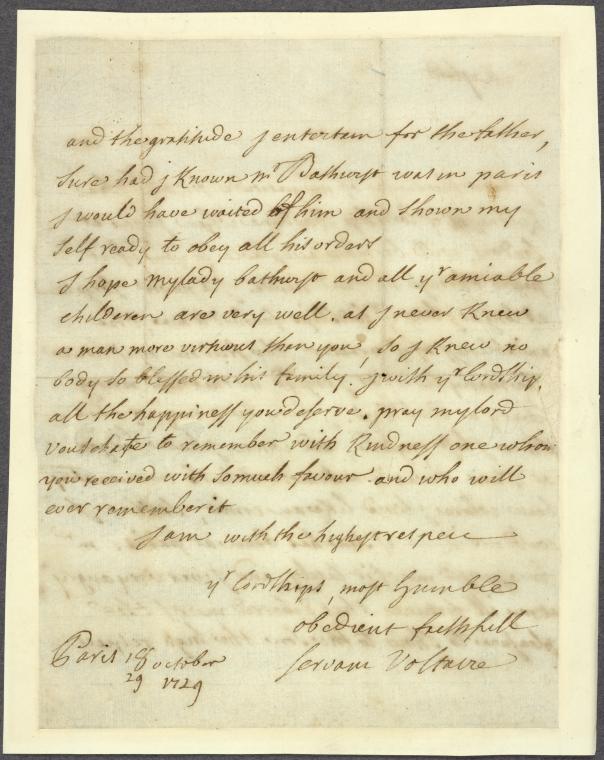 and the gratitude j entertain for the father,
sure had j known mr Bathurst was in paris
j would have waited of him and shown my
self ready to obey all his orders
j hope mylady bathurst and all yr amiable
childeren are very well. as j never knew
a man more virtuous then you, so j knew no
body so blessed in his family. j wish yr lordship,
all the happiness you deserve. pray mylord
vouschafe to remember with kindness one whom
you received with somuch favour and who will
ever remember it
j am with the highest respec
yr lordships, most humble
obedient faithfull
servant Voltaire
Paris 18 october
29 1729